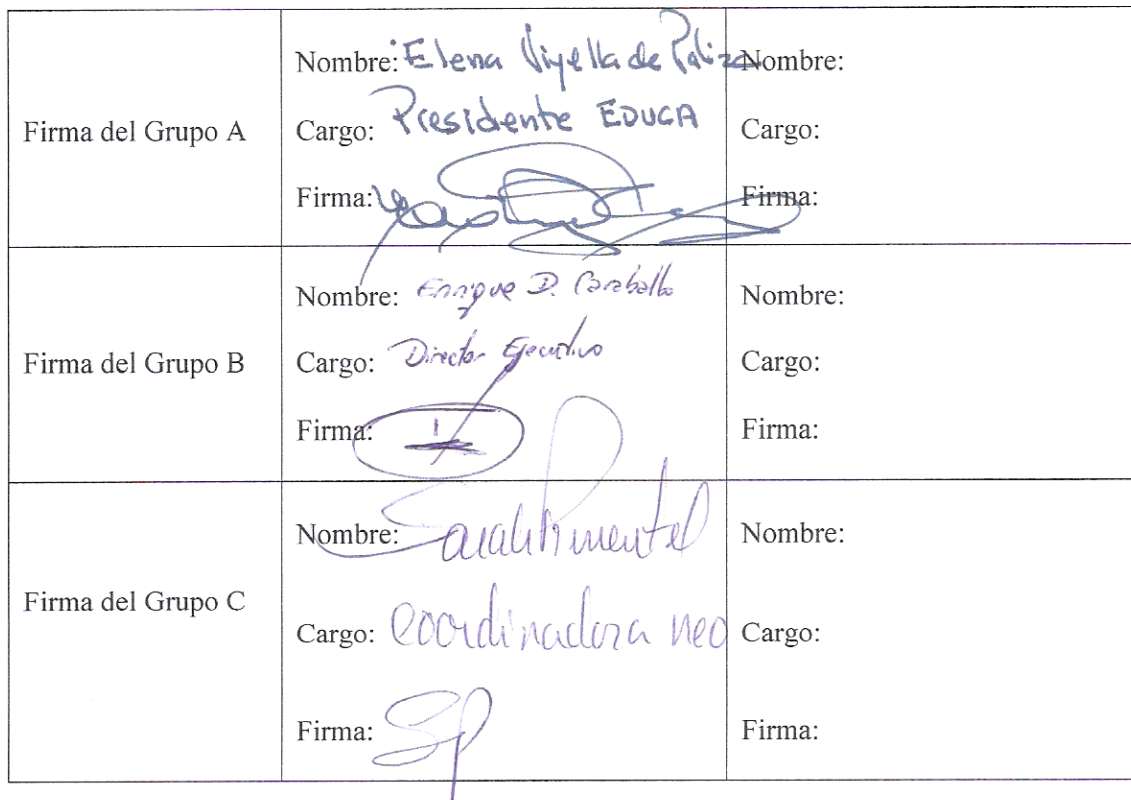 Firma del Grupo A
Nombre: Elena Viyella de Paliza
Cargo: Presidente EDUCA
Firma:
Nombre:
Cargo:
Firma:
Firma del Grupo B
Nombre: Enrique D. Caraballo
Cargo: Director Ejecutivo
Firma:
Nombre:
Cargo:
Firma:
Firma del Grupo C
Nombre: Sarah Pimentel
Cargo: Coordinadora neo
Firma: SP
Nombre:
Cargo:
Firma: